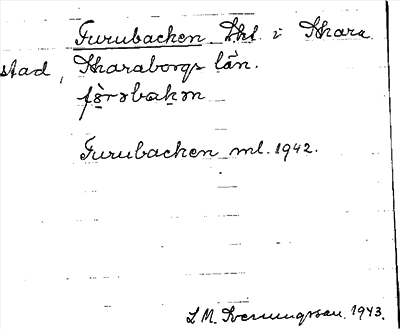 Furubacken Lkl. i Skara
stad, Skaraborgs län.
fə̀rəbakən
Furubacken ml. 1942.
L M. Svenungsson. 1943.